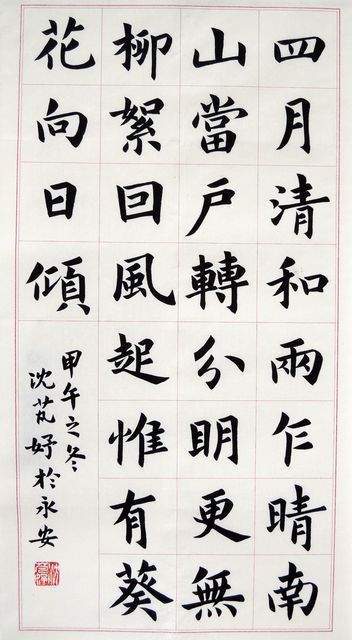 四月清和兩乍晴南
山當戶轉分明更無
柳絮回風起惟有葵
花向日傾
甲午之冬
沈芃妤於永安